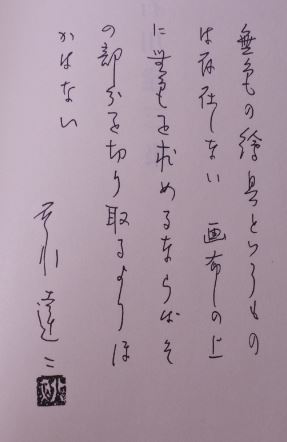 無色の繪具といふもの
は存在しない 画布の上
に無色を求めるならばそ
の部分を切り取るよりほ
かはない